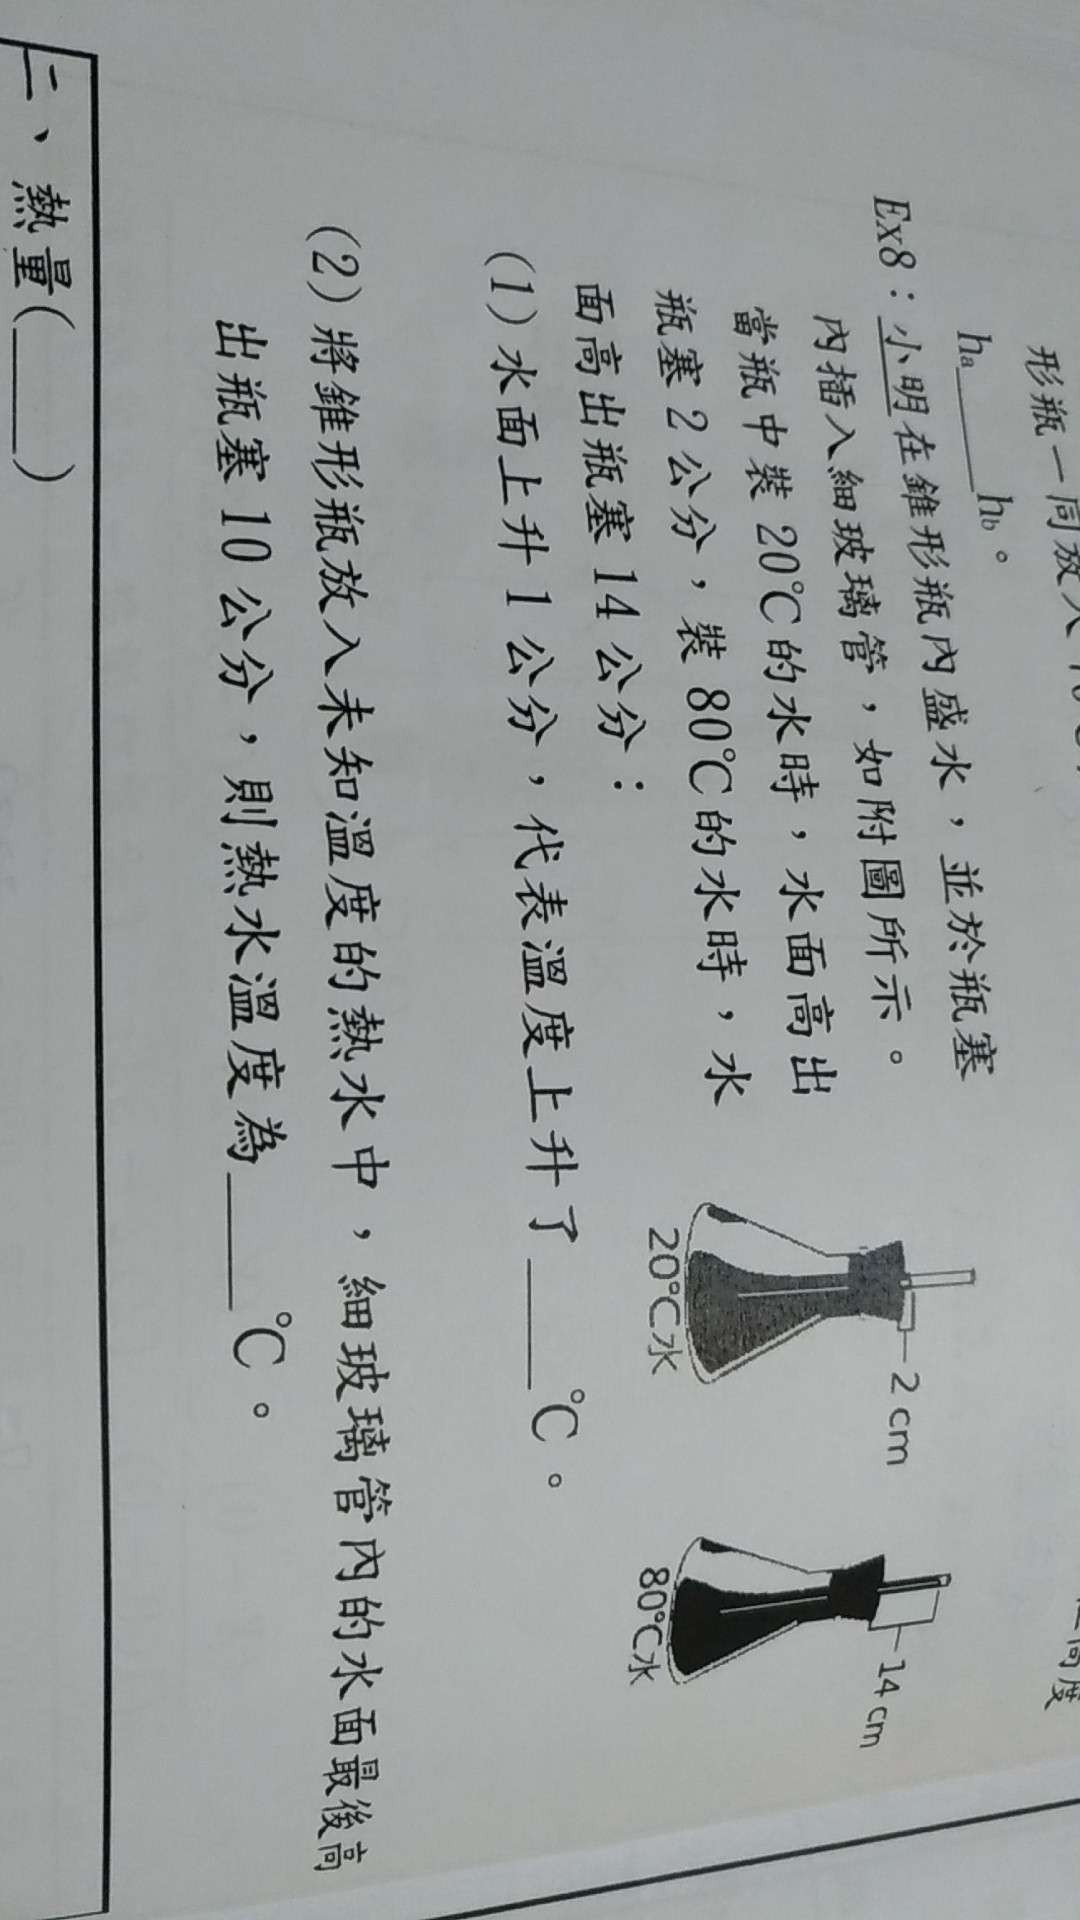 形瓶一同放入
ha____hb。
Ex8：小明在錐形瓶內盛水，並於瓶塞
內插入細玻璃管，如附圖所示。
當瓶中裝 20℃的水時，水面高出
瓶塞 2 公分，裝 80℃的水時，水
面高出瓶塞 14 公分：
2 cm
14 cm
20℃水
80℃水
(1) 水面上升 1 公分，代表溫度上升了____℃。
(2) 將錐形瓶放入未知溫度的熱水中，細玻璃管內的水面最後高
出瓶塞 10 公分，則熱水溫度為____℃。
二、熱量(____)